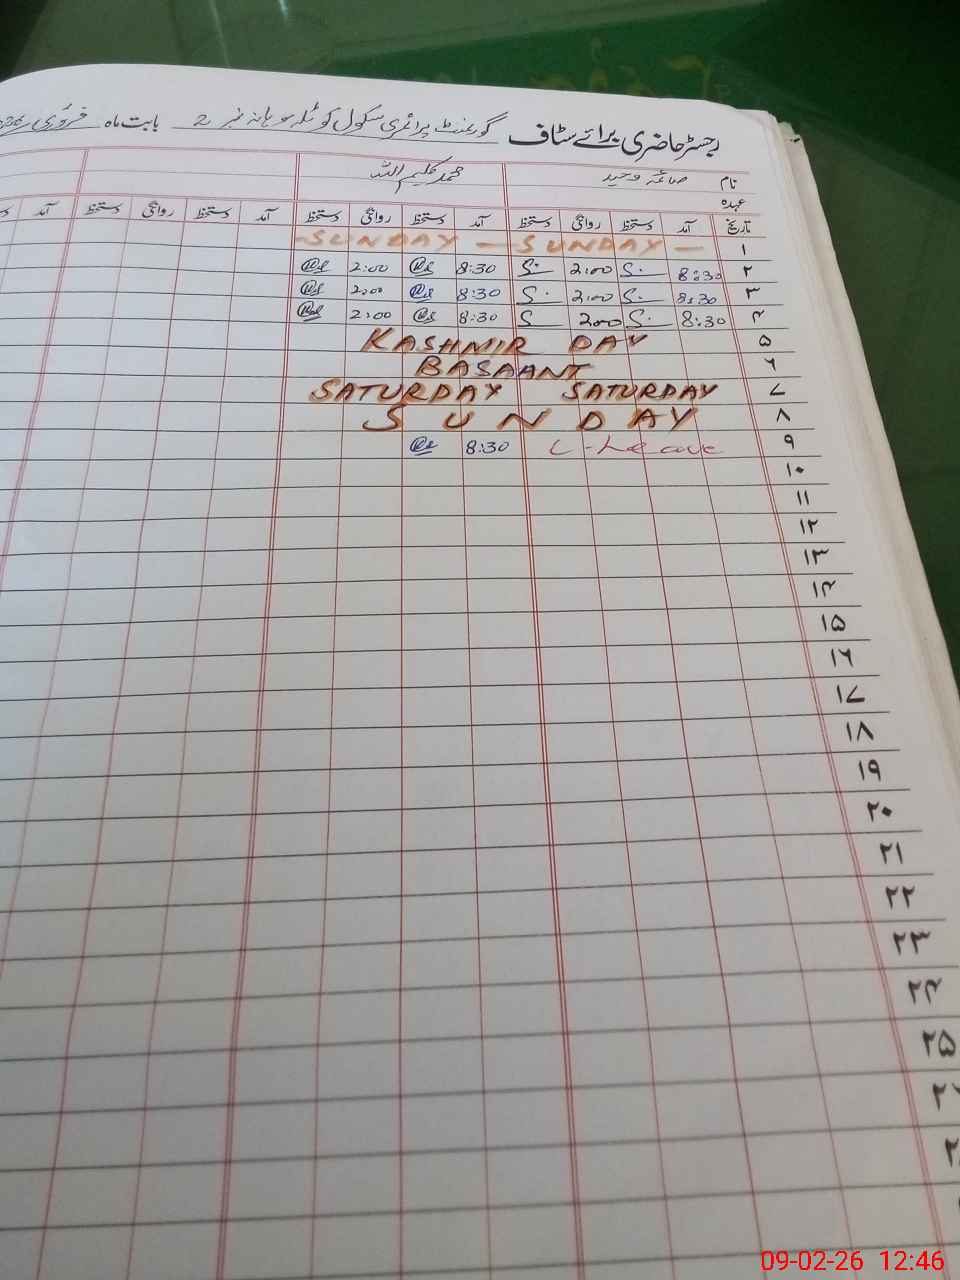 رجسٹر حاضری برائے سٹاف گورنمنٹ پرائمری سکول کوٹلہ سوہانہ نمبر 2 بابت ماہ فروری
نام صائمہ وحید محمد حکیم اللہ
عہدہ
تاریخ آمد دستخط روانگی دستخط آمد دستخط روانگی دستخط آمد دستخط روانگی دستخط آمد
۱ - SUNDAY - SUNDAY -
۲ 8:30 S. 2:00 S. 8:30 2:00
۳ 8:30 S. 2:00 S. 8:30 2:00
۴ 8:30 S. 2:00 S 8:30 2:00
۵ KASHMIR DAY
۶ BASAANT
۷ SATURDAY SATURDAY
۸ SUNDAY
۹ C-Leave 8:30
۱۰
۱۱
۱۲
۱۳
۱۴
۱۵
۱۶
۱۷
۱۸
۱۹
۲۰
۲۱
۲۲
۲۳
۲۴
۲۵
09-02-26 12:46